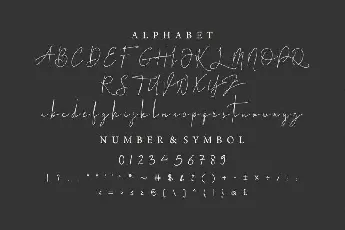 ALPHABET
ABCDEFGHIJKLMNOPQ
RSTUVWXYZ
abcdefghijklmnopqrstuvwxyz
NUMBER & SYMBOL
0123456789